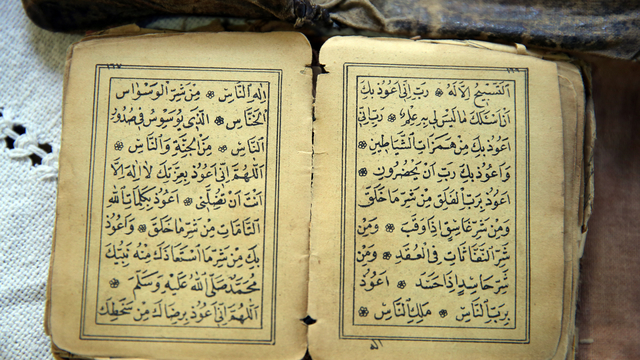 اَلتَّسْبِيحُ اِلَّا لَهُ ❋ رَبِّ اِنِّى اَعُوذُ بِكَ
اَنْ اَسْئَلَكَ مَا لَيْسَ لِى بِهِ عِلْمٌ ❋ رَبِّ اِنِّى
اَعُوذُ بِكَ مِنْ هَمَزَاتِ الشَّيَاطِينِ ❋
وَاَعُوذُ بِكَ رَبِّ اَنْ يَحْضُرُونِ ❋
اَعُوذُ بِرَبِّ الْفَلَقِ مِنْ شَرِّ مَا خَلَقَ
وَمِنْ شَرِّ غَاسِقٍ اِذَا وَقَبَ ❋ وَمِنْ
شَرِّ النَّفَّاثَاتِ فِى الْعُقَدِ ❋ وَمِنْ
شَرِّ حَاسِدٍ اِذَا حَسَدَ ❋ اَعُوذُ
بِرَبِّ النَّاسِ ❋ مَلِكِ النَّاسِ ❋
اِلٰهِ النَّاسِ ❋ مِنْ شَرِّ الْوَسْوَاسِ
الْخَنَّاسِ ❋ الَّذِى يُوَسْوِسُ فِى صُدُورِ
النَّاسِ ❋ مِنَ الْجِنَّةِ وَالنَّاسِ ❋
اَللّٰهُمَّ اِنِّى اَعُوذُ بِعِزَّتِكَ لَا اِلٰهَ اِلَّا
اَنْتَ اَنْ تُضِلَّنِى ❋ اَعُوذُ بِكَلِمَاتِ اللّٰهِ
التَّامَّاتِ مِنْ شَرِّ مَا خَلَقَ ❋ وَاَعُوذُ
بِكَ مِنْ شَرِّ مَا اسْتَعَاذَكَ مِنْهُ نَبِيُّكَ
مُحَمَّدٌ صَلَّى اللّٰهُ عَلَيْهِ وَسَلَّمَ ❋
اَللّٰهُمَّ اِنِّى اَعُوذُ بِرِضَاكَ مِنْ سَخَطِكَ